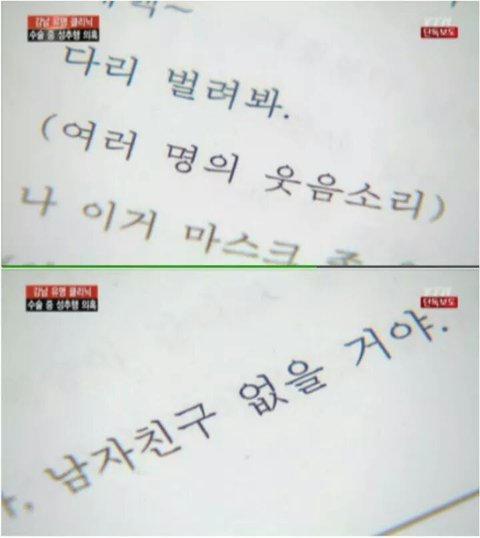 강남 유명 클리닉
수술 중 성추행 의혹
YTN
단독보도
다리 벌려봐.
(여러 명의 웃음소리)
나 이거 마스크
강남 유명 클리닉
수술 중 성추행 의혹
YTN
단독보도
남자친구 없을 거야.